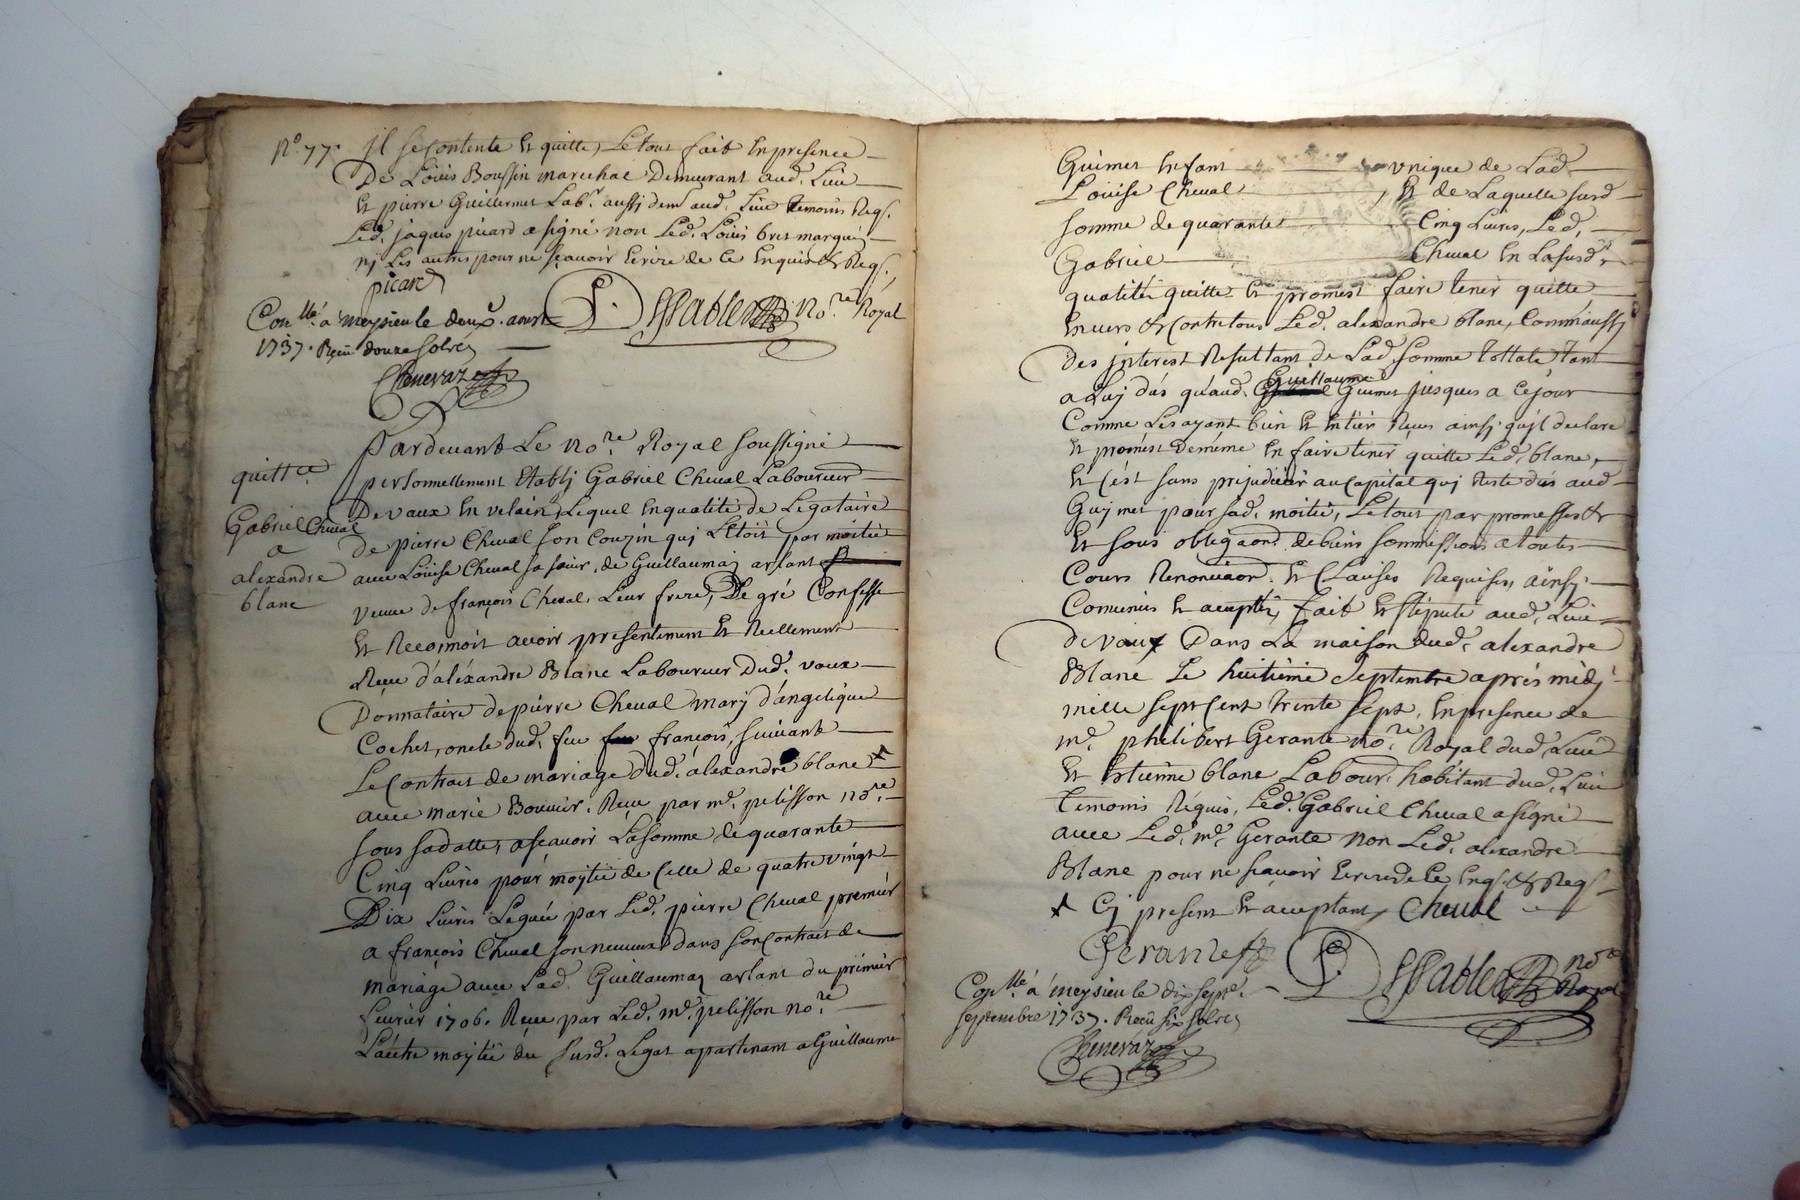 N.º 77.
il se contente et quitte, Le tout fait en presence
De Loüis Boussin marechal Demeurant aud. Lieu
et pierre Guillermet Lab.r aussj dem.t aud. Lieu temoins Reqs.
Led. jaques picard a signé non Led. Loüis bret marqué
nj Les autres pour ne sçavoir Ecrire de ce Enquis & Reqs.
picard
Con.llé a meysieu le deux. aoust
1737. Reçu douze sols
Chenevaz
No.re Royal
quitt.ce
Gabriel Cheval
a
alexandre
blanc
Pardevant Le no.re Royal soussigné
personnellement Etablj Gabriel Cheval Laboureur
De vaux En velain, Lequel En qualité de Legataire
de pierre Cheval son Couzin quj L'étoit par moitié
avec Loüise Cheval sa sœur, de Guillaumaz arlant
veuve de françois Cheval, Leur frere, De gré Confesse
Et Reconnoit avoir presentement Et Réellement
Reçu d'aléxandre Blanc Laboureur Dud. vaux
Donnataire de pierre Cheval marj d'angelique
Cochet, oncle dud. feu feu françois, suivant
Le Contrat de mariage dud. aléxandre blanc x
avec marie Bouvier. Reçu par m.e pelisson no.re
sous sa datte, a sçavoir La somme de quarante
Cinq Livres pour moytié de Celle de quatre vingt
Dix Livres Leguée par Led. pierre Cheval premier
a françois Cheval son neveux dans son Contrat de
mariage avec Lad. Guillaumaz arlant du primier
fevrier 1706. Reçu par Led. m.e pelisson no.re
L'autre moytié du susd. Legat apartenant a Guillaume
Guimet Enfant unique de Lad.
Loüise Cheval, Et de Laquelle susd.
somme de quarante Cinq Livres, Led.
Gabriel Cheval En La susd.
qualité quitte Et promest faire tenir quitte
Envers & Contre tous Led. alexandre blanc, Comm'aussj
Des jnterest Resultant de Lad. somme tottale tant
a Luj dus qu'aud. Guillaume Guimet jusques a Cejour
Comme Les ayant bien Et Entier Reçus ainsj qu'jl declare
Et promest De même En faire tenir quitte Led. blanc,
Et C'est sans prejudicier au Capital quj Reste dus aud.
Guymet pour sad. moitié, Le tout par promesses &
Et sous obligaon. de biens sommissions a toutes
Cours Renonciaon. Et Clauses Requises, ainsj
Convenus Et accepté, fait Et stipulé aud. Lieu
de vaux Dans La maison dud. alexandre
Blanc Le huitième septembre aprés midj
mille sept Cent trente sept, En presence de
m.e philibert Gerante no.re Royal dud. Lieu
Et Estienne blanc Labour. habitant dud. Lieu
Temoins Réquis, Led. Gabriel Cheval a signé
avec Led. m.e Gerante non Led. alexandre
Blanc pour ne sçavoir Ecrire de Ce Enqs. & Reqs.
x Cj present Et acceptant, Cheval
Gerante
no.re
Royal
Con.llé a meysieu le dix sept.e
septembre 1737. Reçu six sols
Chenevaz